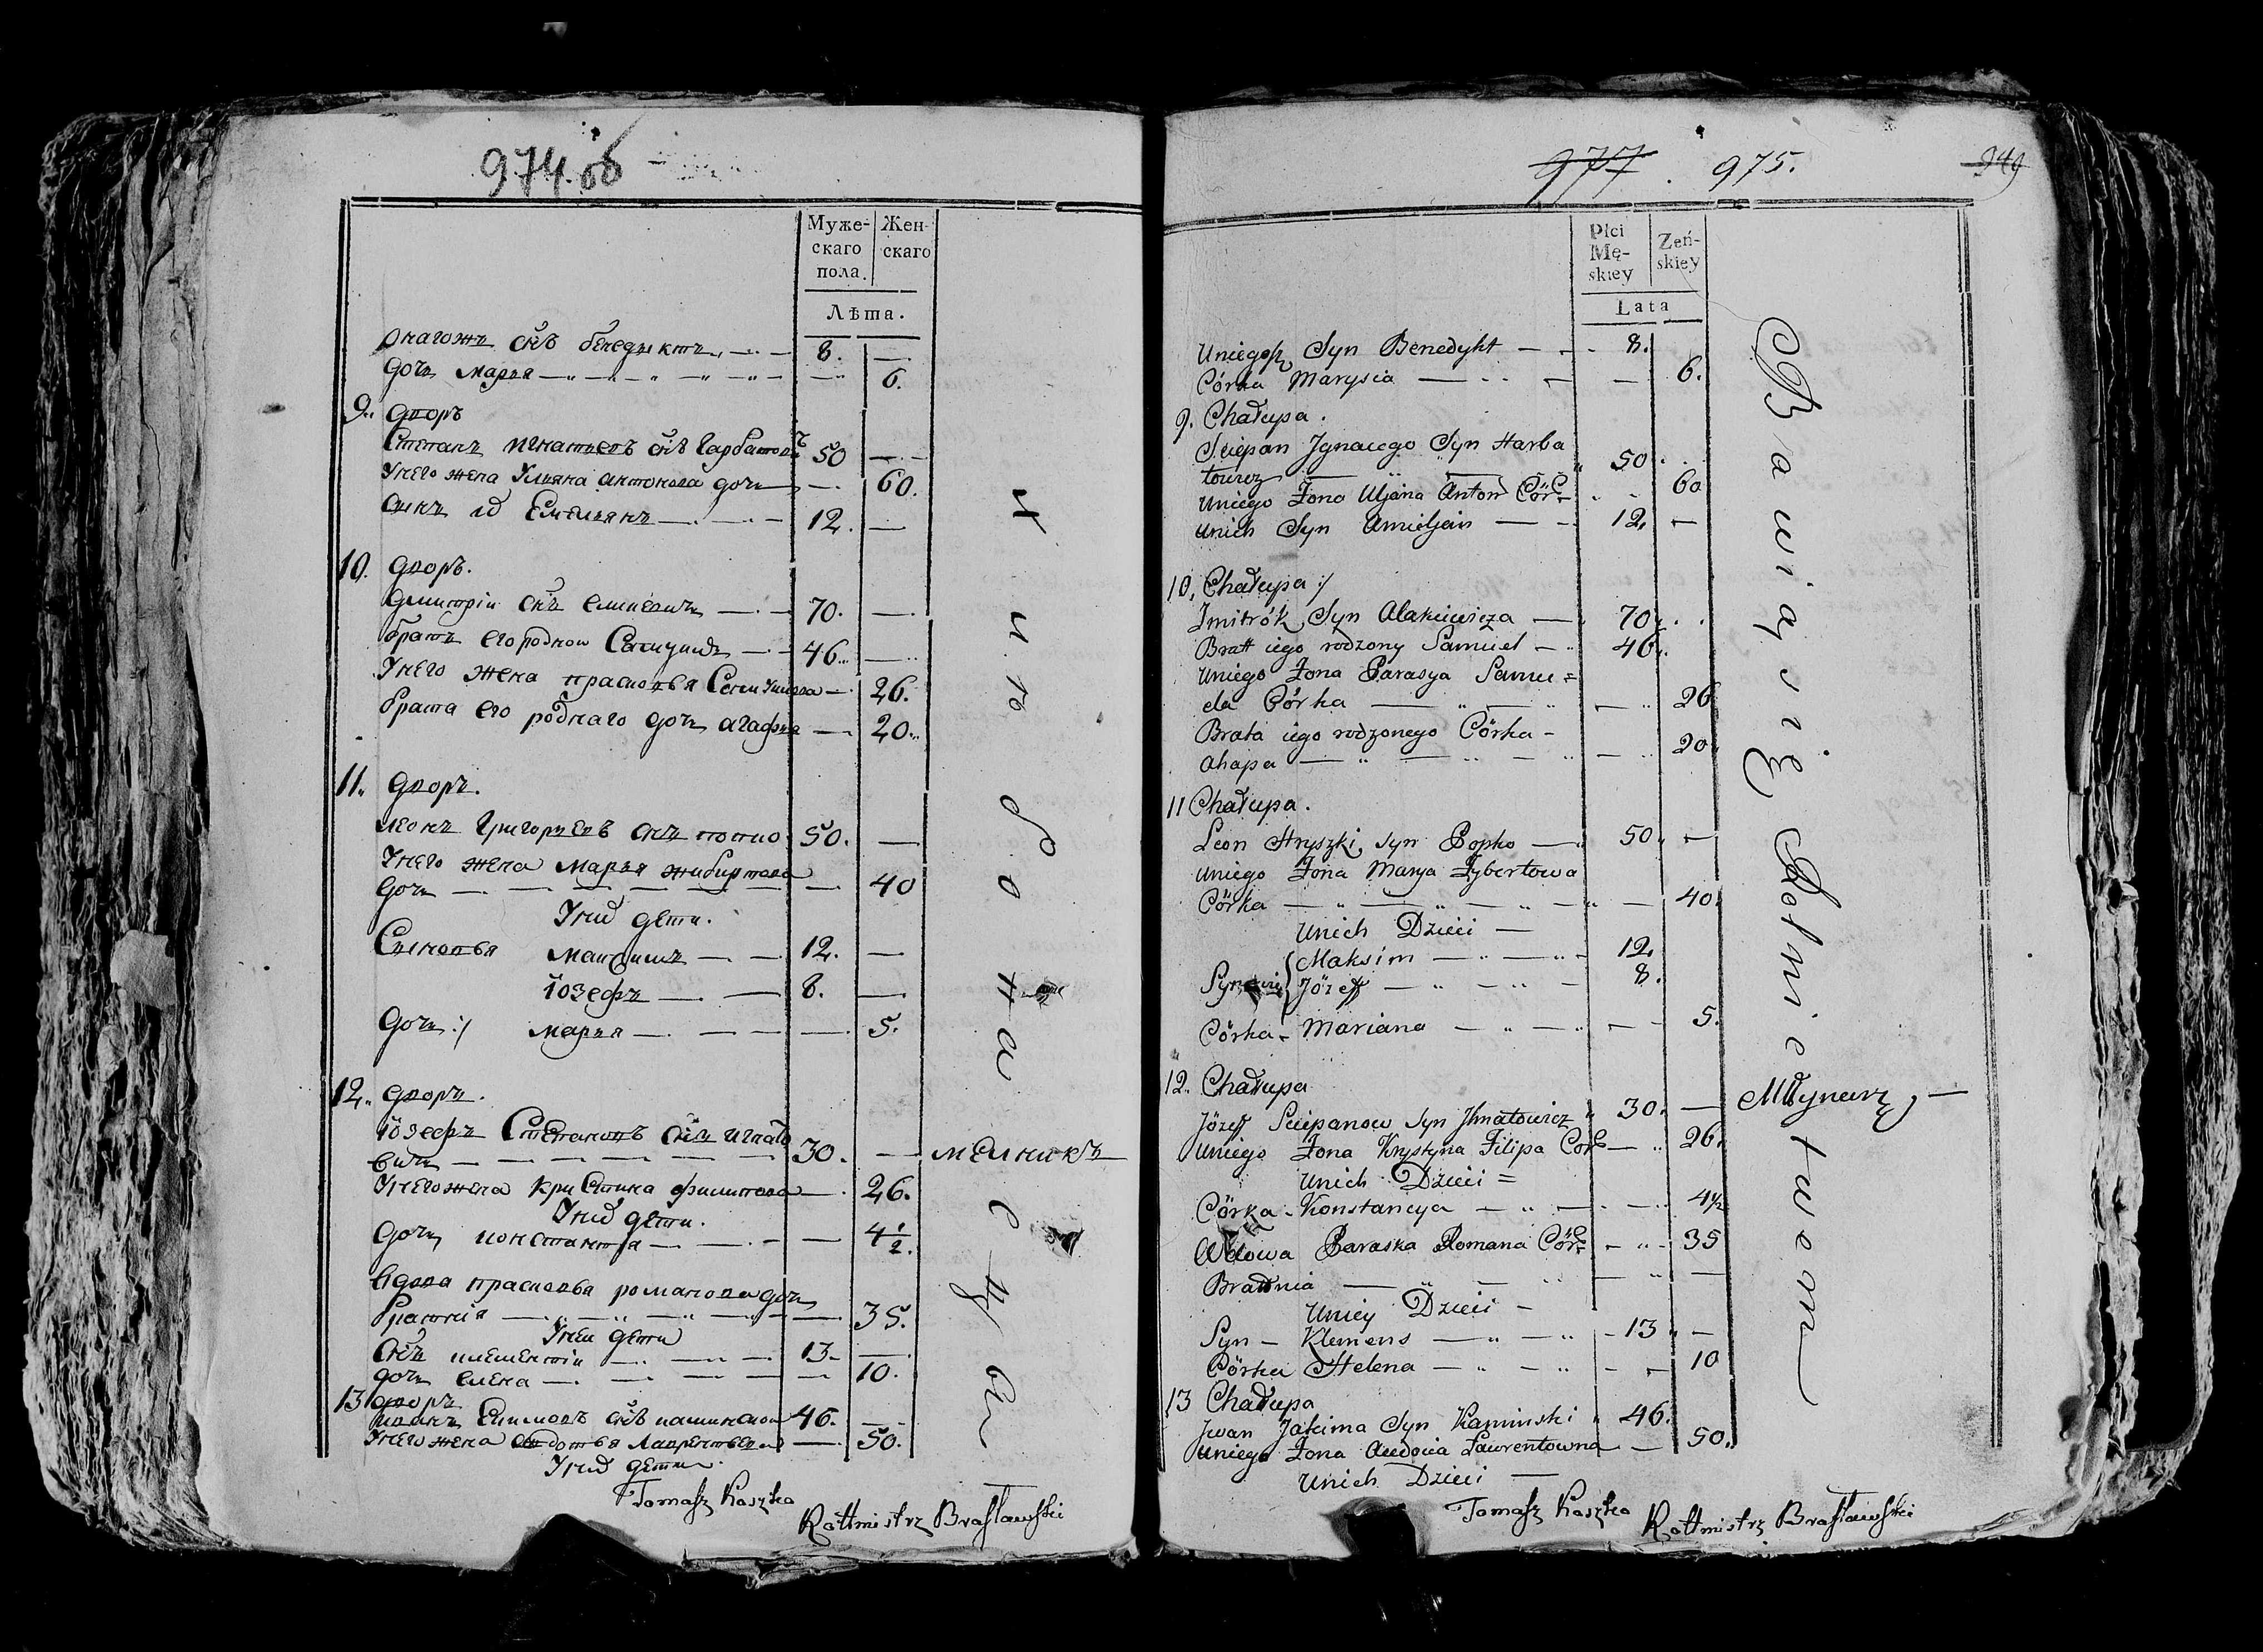 974. об
Муже-
скаго
пола.
Жен-
скаго
Лѣта.
снъ бенедыктъ 8.
дочь марья 6.
9. дворъ
Степанъ игнатьевъ снъ Гарбатовичъ 50
У него жена Ульяна антонова дочь 60.
Емельянъ 12.
10. дворъ.
дмитрій снъ 70.
братъ его родной 46.
У него жена прасковья 26.
брата его роднаго дочь агафья 20.
11. дворъ.
леонъ Григорьевъ снъ попко 50.
У него жена марья жибиртова
дочь 40
У них дети.
Сыновья максимъ 12.
іозефъ 8.
дочь :/ марья 5.
12. дворъ.
іозефъ Степановъ снъ игнато
вичъ 30. мелникъ
У него жена кристина филипова 26.
У них дети.
дочь констанція 4 1/2.
вдова прасковья романова дочь
братнія 35.
У неи дети
снъ климентіи 13
дочь елена 10.
13 дворъ
иванъ снъ каминскои 46.
У него жена авдотья лаврентьева 50.
У них дети.
Tomasz Koszko
Rottmistrz Brasławski
977. 975.
949
Płci
Mę-
skiey
Żeń-
skiey
Lata
Uniegoż Syn Benedykt 8.
Córka Marysia 6.
9. Chałupa.
Sciepan Jgnacego Syn Harba
towicz 50
Uniego Żona Uljana Anton Cór 60
Unich Syn Amieljan 12.
10. Chałupa :/
Dmitrók Syn 70
Bratt iego rodzony Samuel 46.
Uniego Żona Parasya Samu=
ela Córka 26
Brata iego rodzonego Córka
Ahapa 20
11 Chałupa.
Leon Hryszki Syn Popko 50
Uniego Żona Marya Żybertowa
Córka 40
Unich Dzieci
Synowie Maksim 12.
Józeff 8.
Córka Mariana 5.
12. Chałupa
Józeff Sciepanow Syn Jhnatowicz 30. Młynarz,
Uniego Żona Krystyna Filipa Cor 26.
Unich Dzieci =
Córka Konstancya 4 1/2
Wdowa Paraska Romana Cór 35
Bratnia
Uniey Dzieci
Syn Klemens 13
Córka Helena 10
13 Chałupa
Jwan Jakima Syn Kaminski 46.
Uniego Żona Awdocia Laurentowna 50.
Unich Dzieci
Bawią się Rolnictwem
Tomasz Koszko Rottmistrz Brasławski